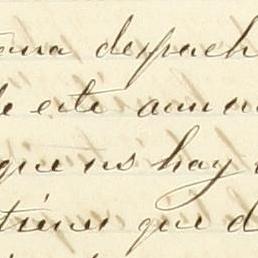 despach
de este aun
que no hay
tienes que d